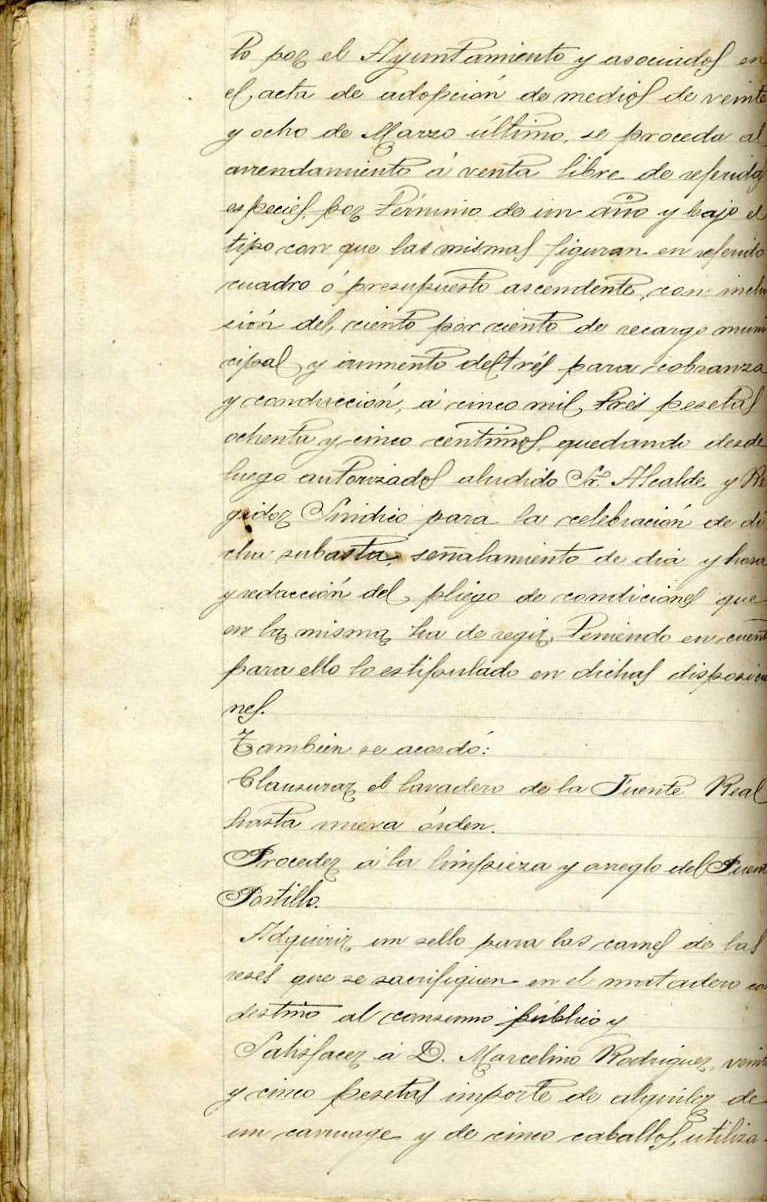 to por el Ayuntamiento y asociados en
el acta de adopción de medios de veinte
y ocho de Marzo último, se proceda al
arrendamiento á venta libre de referidas
especies, por término de un año y bajo el
tipo con que las mismas figuran en referido
cuadro ó presupuesto ascendente, con inclu
sión del ciento por ciento de recargo muni
cipal y aumento del trés para cobranza
y conducción, á cinco mil tres pesetas
ochenta y cinco centimos, quedando desde
luego autorizados aludido Sr. Alcalde y Re
gidor Sindico para la celebración de di
cha subasta, señalamiento de dia y hora
y redacción del pliego de condiciones que
en la misma ha de regir, teniendo en cuent
para ello lo estipulado en dichas disposicio
nes.
Tambien se acordó:
Clausurar el lavadero de la Fuente Real
hasta nueva órden.
Proceder á la limpieza y arreglo del Puent
Portillo.
Adquirir un sello para las carnes de las
reses que se sacrifiquen en el matadero con
destino al consumo público y
Satisfacer á D. Marcelino Rodriguez, veinte
y cinco pesetas importe de alquiler de
un carruage y de cinco caballos, utiliza-